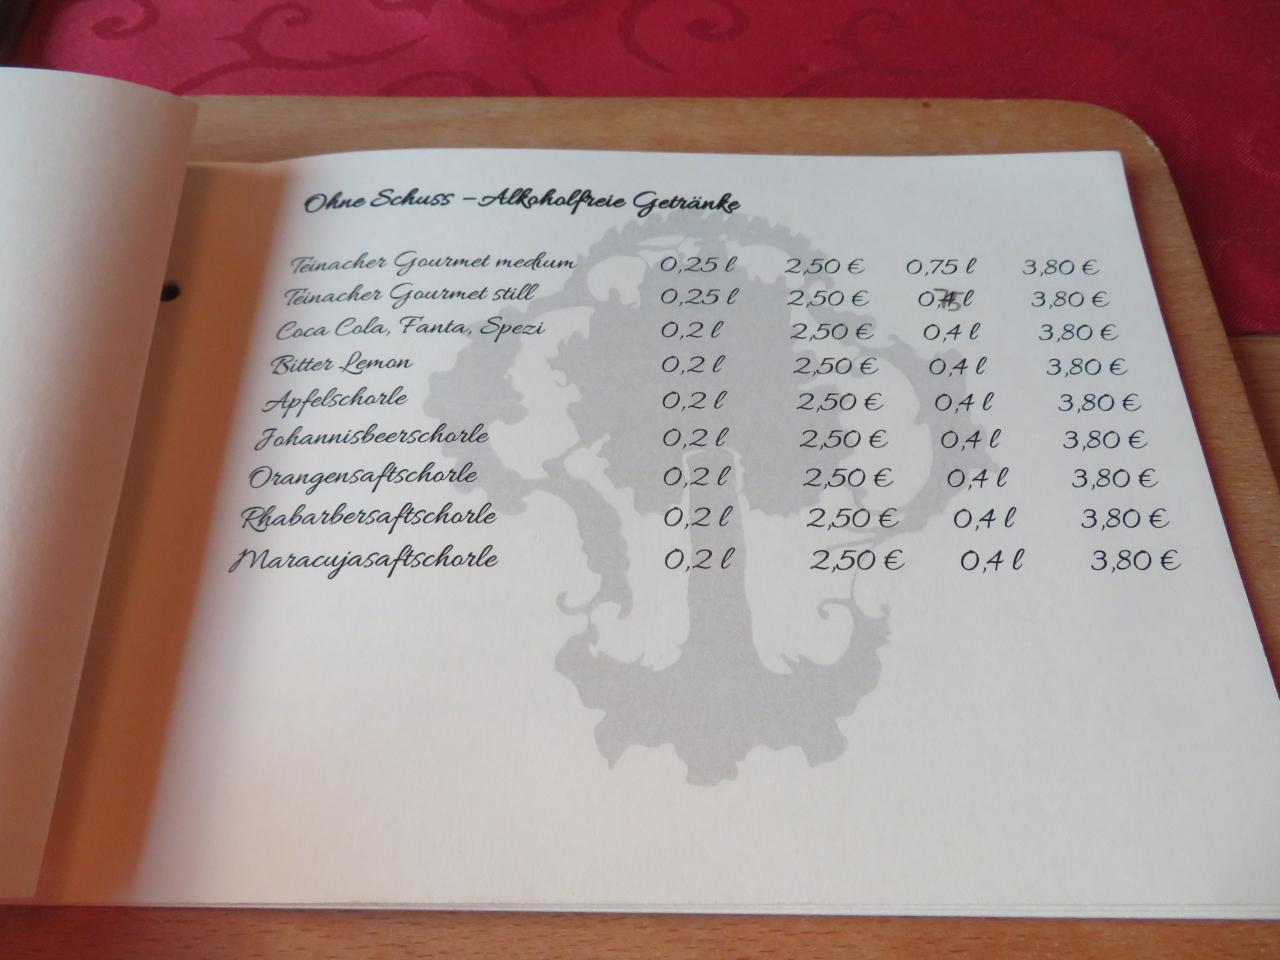 Ohne Schuss – Alkoholfreie Getränke
Teinacher Gourmet medium 0,25 l 2,50 € 0,75 l 3,80 €
Teinacher Gourmet still 0,25 l 2,50 € 0,75 l 3,80 €
Coca Cola, Fanta, Spezi 0,2 l 2,50 € 0,4 l 3,80 €
Bitter Lemon 0,2 l 2,50 € 0,4 l 3,80 €
Apfelschorle 0,2 l 2,50 € 0,4 l 3,80 €
Johannisbeerschorle 0,2 l 2,50 € 0,4 l 3,80 €
Orangensaftschorle 0,2 l 2,50 € 0,4 l 3,80 €
Rhabarbersaftschorle 0,2 l 2,50 € 0,4 l 3,80 €
Maracujasaftschorle 0,2 l 2,50 € 0,4 l 3,80 €